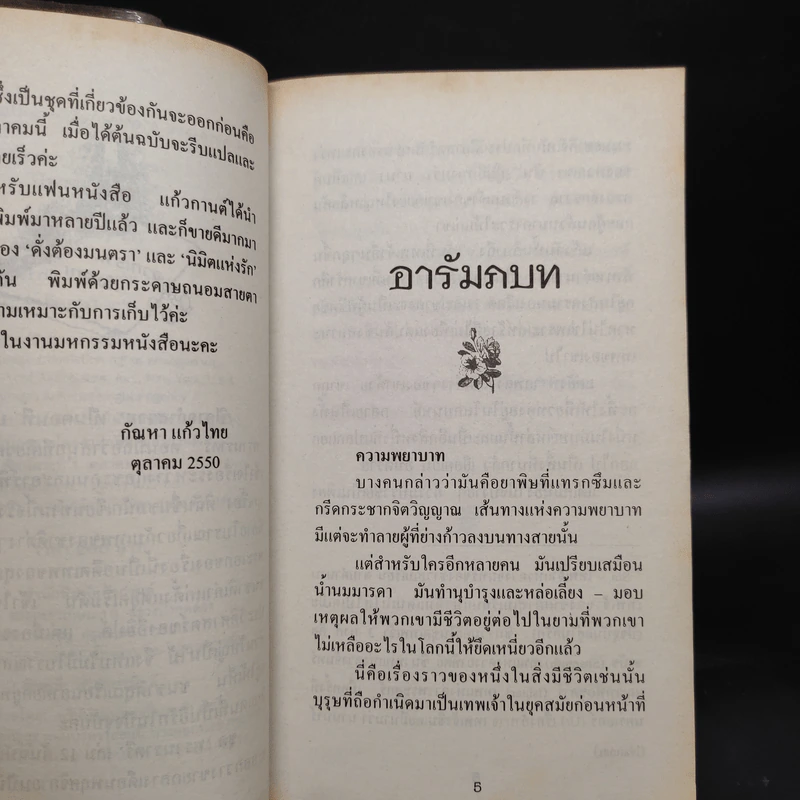 ซึ่งเป็นชุดที่เกี่ยวข้องกันจะออกก่อนคือ
าคมนี้ เมื่อได้ต้นฉบับจะรีบแปลและ
ยเร็วค่ะ
หรับแฟนหนังสือ แก้วกานต์ได้นำ
พิมพ์มาหลายปีแล้ว และก็ขายดีมากมา
อง ‘ดั่งต้องมนตรา’ และ ‘นิมิตแห่งรัก’
กัน พิมพ์ด้วยกระดาษถนอมสายตา
ามเหมาะกับการเก็บไว้ค่ะ
ในงานมหกรรมหนังสือนะคะ
กัณหา แก้วไทย
ตุลาคม 2550
อารัมภบท
ความพยาบาท
บางคนกล่าวว่ามันคือยาพิษที่แทรกซึมและ
กรีดกระชากจิตวิญญาณ เส้นทางแห่งความพยาบาท
มีแต่จะทำลายผู้ที่ย่างก้าวลงบนทางสายนั้น
แต่สำหรับใครอีกหลายคน มันเปรียบเสมือน
น้ำนมมารดา มันทำนุบำรุงและหล่อเลี้ยง – มอบ
เหตุผลให้พวกเขามีชีวิตอยู่ต่อไปในยามที่พวกเขา
ไม่เหลืออะไรในโลกนี้ให้ยึดเหนี่ยวอีกแล้ว
นี่คือเรื่องราวของหนึ่งในสิ่งมีชีวิตเช่นนั้น
บุรุษที่ถือกำเนิดมาเป็นเทพเจ้าในยุคสมัยก่อนหน้าที่
5